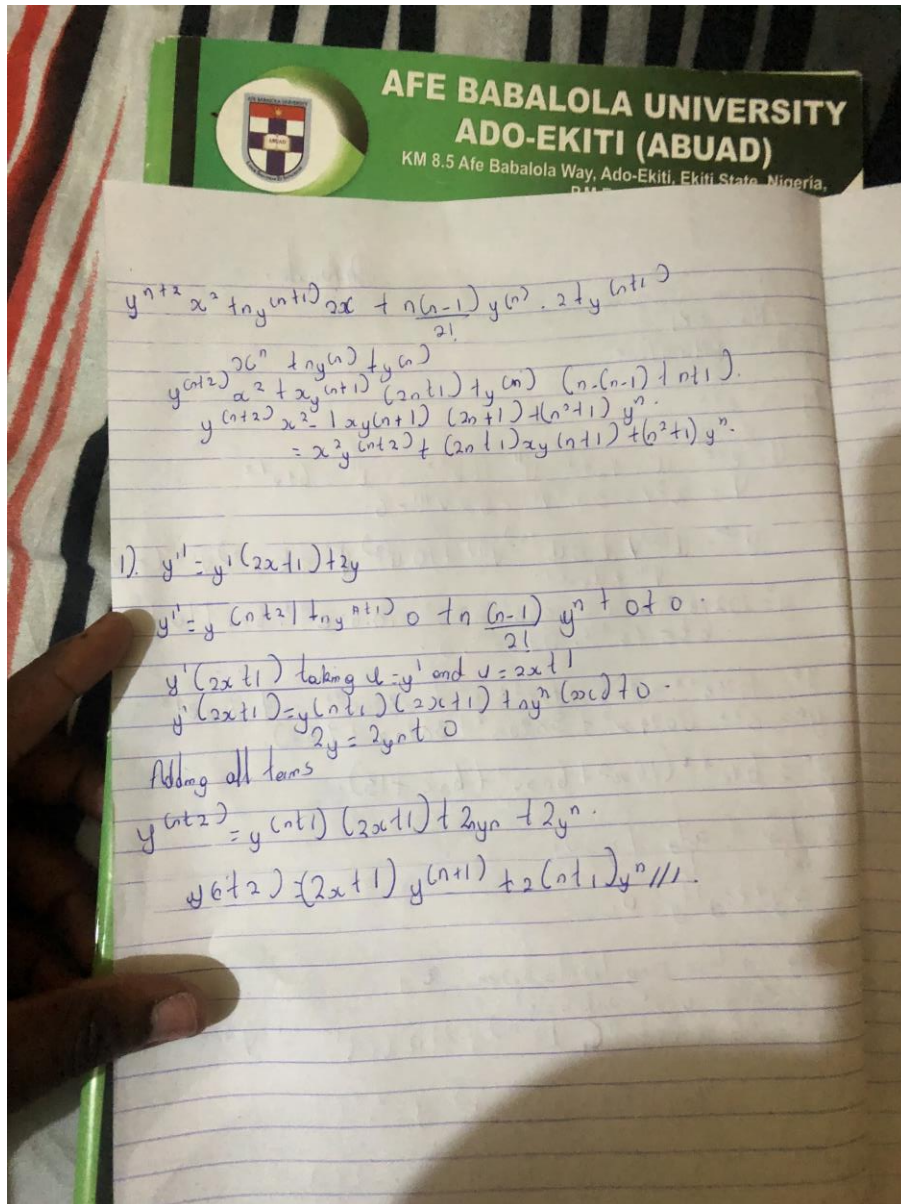 AFE BABALOLA UNIVERSITY
ADO-EKITI (ABUAD)
KM 8.5 Afe Babalola Way, Ado-Ekiti, Ekiti State, Nigeria,
y^{n+2} x² + ny^{(n+1)} 2x + n(n-1)/2! y^{(n)} . 2 + y^{(n+1)}
x^n + ny^{(n)} + y^{(n)}
y^{(n+2)} x² + xy^{(n+1)} (2n+1) + y^{(n)} (n-(n-1) + n+1).
y^{(n+2)} x² - 1 xy(n+1) (2n+1) + (n²+1) y^n.
= x²y^{(n+2)} + (2n+1)xy(n+1) + (n²+1) y^n.
1). y'' = y'(2x+1)+2y
y'' = y^{(n+2)} + ny^{n+1)} 0 + n (n-1)/2! y^n + 0 + 0.
y'(2x+1) taking u = y' and v = 2x+1
y'(2x+1) = y(n+1)(2x+1) + ny^n (2x) + 0.
2y = 2yn + 0
Adding all terms
y^{(n+2)} = y^{(n+1)} (2x+1) + 2nyn + 2y^n.
y(n+2) = (2x+1) y^{(n+1)} + 2(n+1)y^n///.